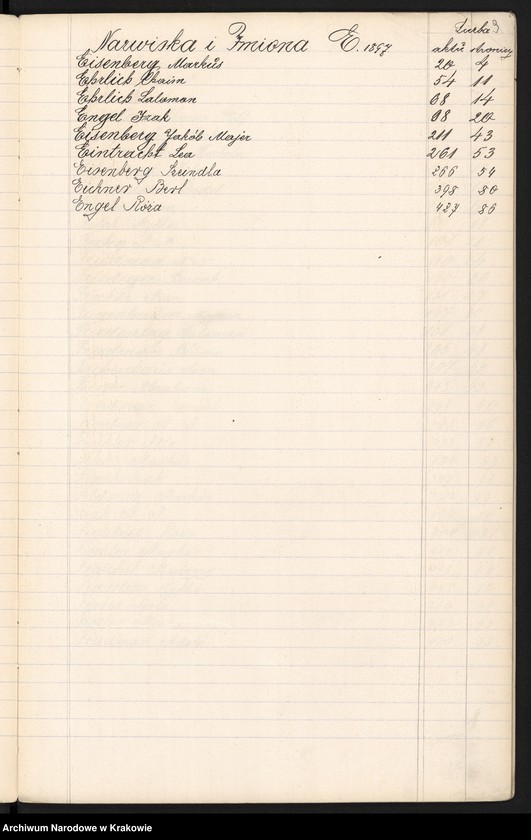 Liczba 3
Nazwiska i Imiona E. 1897
aktu stronicy
Eisenberg Markus 20 4
Ehrlich Chaim 54 11
Ehrlich Salaman 68 14
Engel Izak 98 20
Eisenberg Jakób Majer 211 43
Eintracht Lea 261 53
Eisenberg Szeindla 266 54
Eichner Berl 398 80
Engel Róża 427 86
Archiwum Narodowe w Krakowie